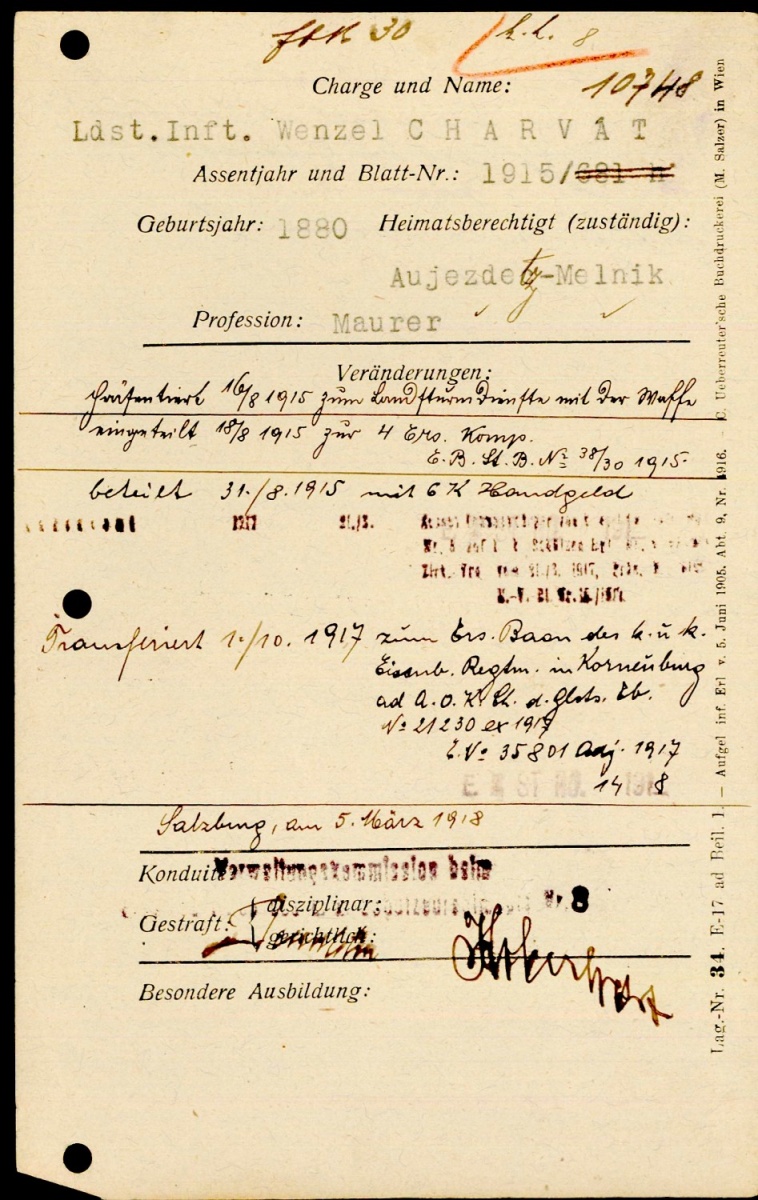 30 8
Charge und Name: 10748
Ldst.Inft. Wenzel CHARVÁT
Assentjahr und Blatt-Nr.: 1915/681 h
Geburtsjahr: 1880 Heimatsberechtigt (zuständig):
Aujezdetz-Melnik
Profession: Maurer
Veränderungen:
Präsentiert 16/8 1915 zum Landsturmdienste mit der Waffe
eingeteilt 18/8 1915 zur 4 Ers. Komp.
E.B. St. B. № 38/30 1915.
beteilt 31./8.1915 mit 6 K Handgeld
1917 21./3.
Transferiert 1./10. 1917 zum Ers. Baon des k. u. k.
Eisenb. Regtm. in Korneuburg
ad A.O.K. Ch. d.
№ 21230 ex 1917
E.№ 35801 Adj. 1917
14 8
Salzburg, am 5. März 1918
Konduite: Verwaltungskommission beim
Gestraft: disziplinar: 8
gerichtlich:
Besondere Ausbildung:
Lag.-Nr. 34. E-17 ad Beil. 1. — Aufgel inf. Erl v. 5. Juni 1905. Abt. 9, Nr. 1916. C. Ueberreuter'sche Buchdruckerei (M. Salzer) in Wien